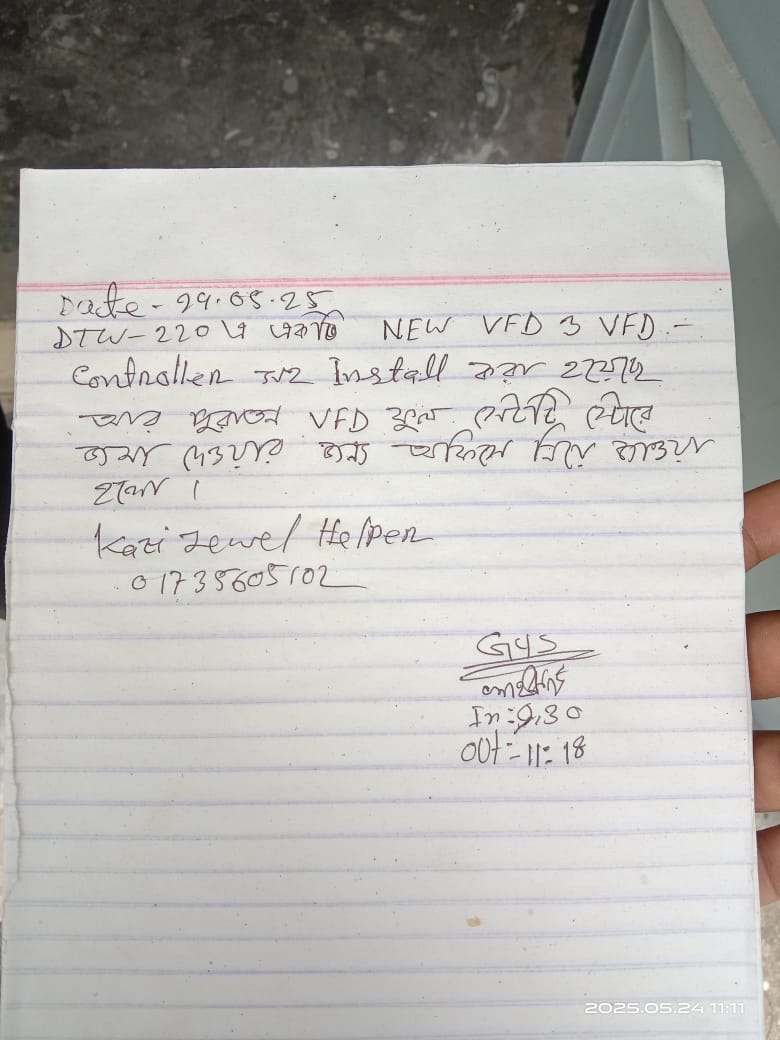 Date - 24.05.25
DTW-220 এ একটি NEW VFD ও VFD -
Controller সহ Install করা হয়েছে
আর পুরাতন VFD ফুল সেটটি স্টোরে
জমা দেওয়ার জন্য অফিসে নিয়ে যাওয়া
হলো ।
Kazi Jewel Helper
01735605102
G4S
In: 9.30
OUt:- 11:18
2025.05.24 11:11